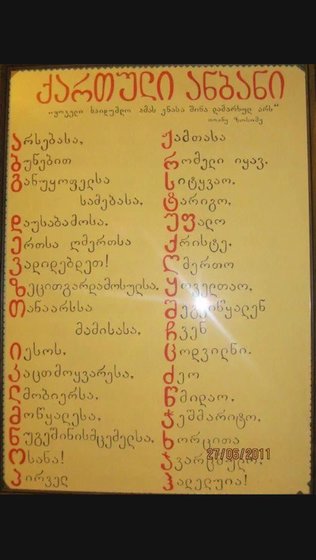 ქართული ანბანი
„ყოველი საიდუმლო ამას ენასა შინა დამარხულ არს“
იოანე ზოსიმე
არსებასა,
ბუნებით
განუყოფელსა
სამებასა.
დაუსაბამოსა.
ერთსა ღმერთსა
ვადიდებდეთ!
ზეცითგარდამოსულსა.
თანაარსსა
მამისასა.
იესოს.
კაცთმოყვარესა.
ლმობიერსა.
მოწყალესა.
ნუგეშინისმცემელსა.
ოსანა!
პირველ
ჟამთასა
რომელი იყავ.
სიტყვაო.
ტარიგო.
უფალო
ქრისტე.
ღმერთო
ყოველთაო.
შეგვიწყალენ
ჩვენ
ცოდვილნი.
ძეო
წმიდაო.
ჭეშმარიტო.
ხორცითა
ჯვარცმულო.
ჰალელუია!
27/06/2011